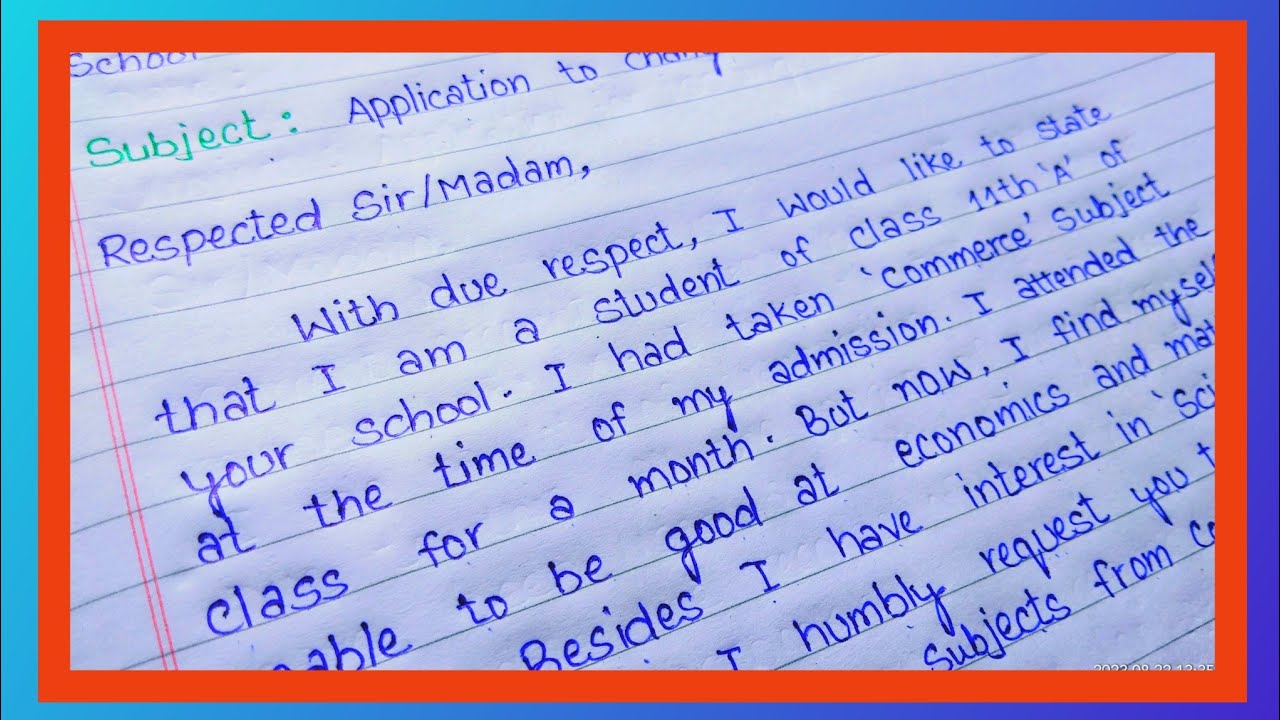 School
Subject: Application to Chang
Respected Sir/Madam,
With due respect, I would like to state
that I am a student of class 11th 'A' of
your school. I had taken 'Commerce' Subject
at the time of my admission. I attended the
class for a month. But now, I find myself
nable to be good at economics and mat
Besides I have interest in 'Sci
I humbly request you t
Subjects from